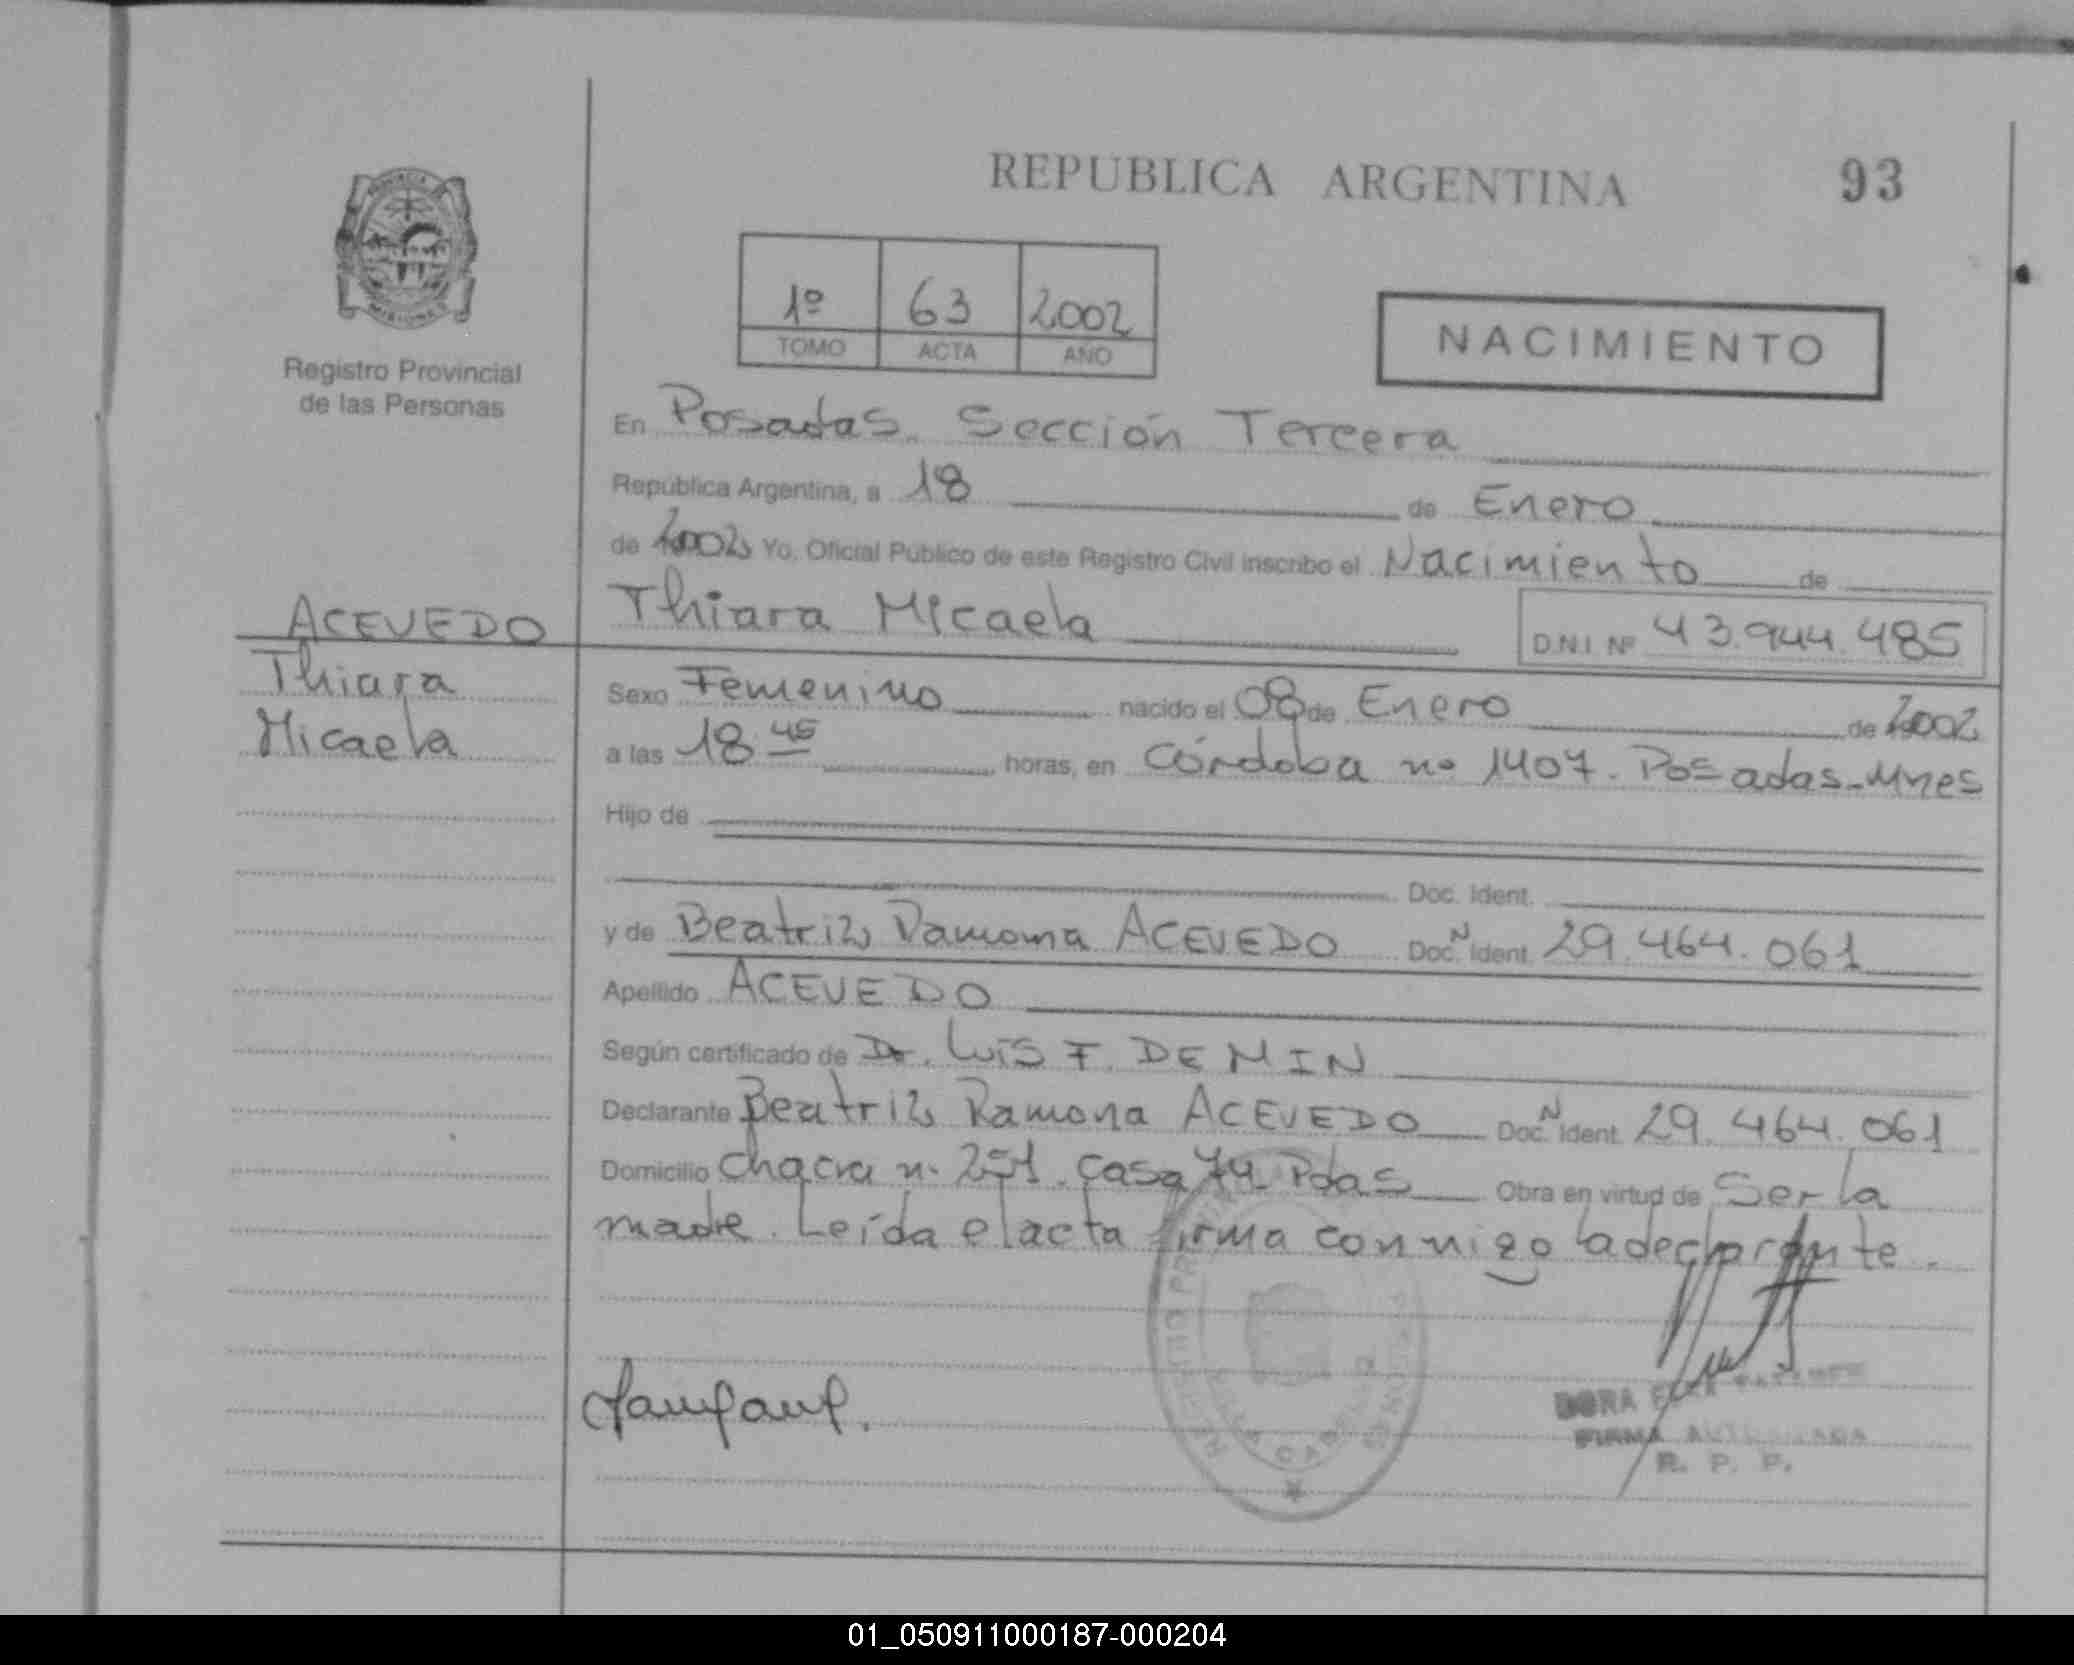 REPUBLICA ARGENTINA
93
PROVINCIA DE
MISIONES
Registro Provincial
de las Personas
1º 63 2002
TOMO ACTA AÑO
NACIMIENTO
En Posadas. Sección Tercera
República Argentina, a 18 de Enero
de 2002 Yo, Oficial Público de este Registro Civil inscribo el Nacimiento de
Thiara Micaela D.N.I. Nº 43.944.485
ACEVEDO
Thiara
Micaela
Sexo Femenino nacido el 08 de Enero de 2002
a las 18.45 horas, en Córdoba nº 1407. Posadas-Mnes
Hijo de
Doc. Ident.
y de Beatriz Ramona ACEVEDO Doc. N Ident. 29.464.061
Apellido ACEVEDO
Según certificado de Dr. Luis F. DEMIN
Declarante Beatriz Ramona ACEVEDO Doc. N Ident. 29.464.061
Domicilio Chacra n. 251. Casa 74. Pdas Obra en virtud de Ser la
madre. Leída el acta firma conmigo la declarante.
DORA
FIRMA AUTORIZADA
R. P. P.
01_050911000187-000204